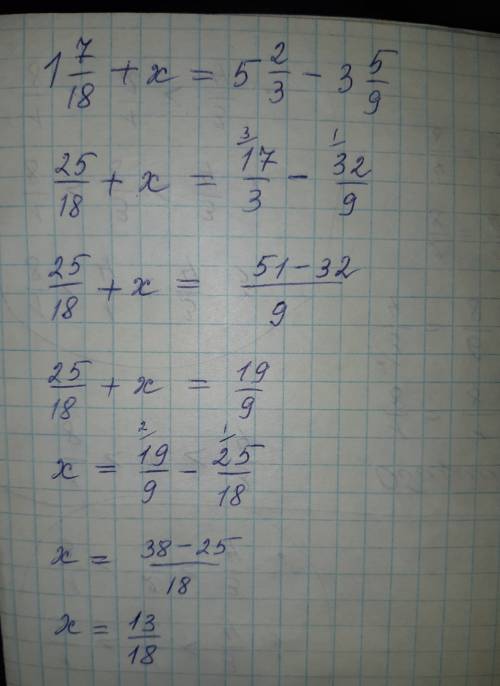 1 7/18 + x = 5 2/3 - 3 5/9
25/18 + x = 17/3 (3/) - 32/9 (1/)
25/18 + x = (51 - 32)/9
25/18 + x = 19/9
x = 19/9 (2/) - 25/18 (1/)
x = (38 - 25)/18
x = 13/18